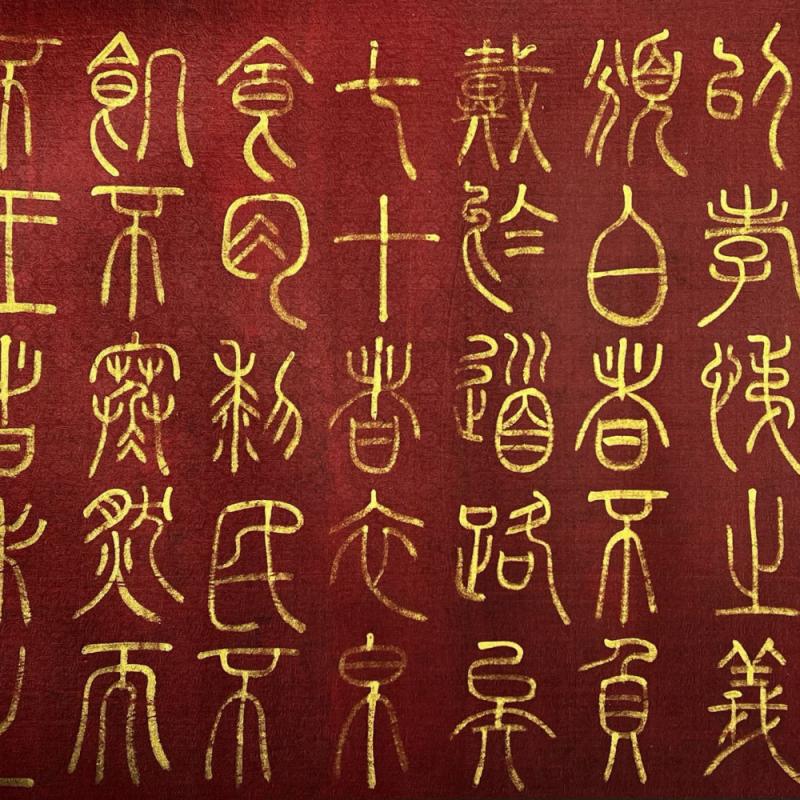 以孝悌之義
頒白者不負
戴於道路矣
七十者衣帛
食肉黎民不
飢不寒然而
不王者未之